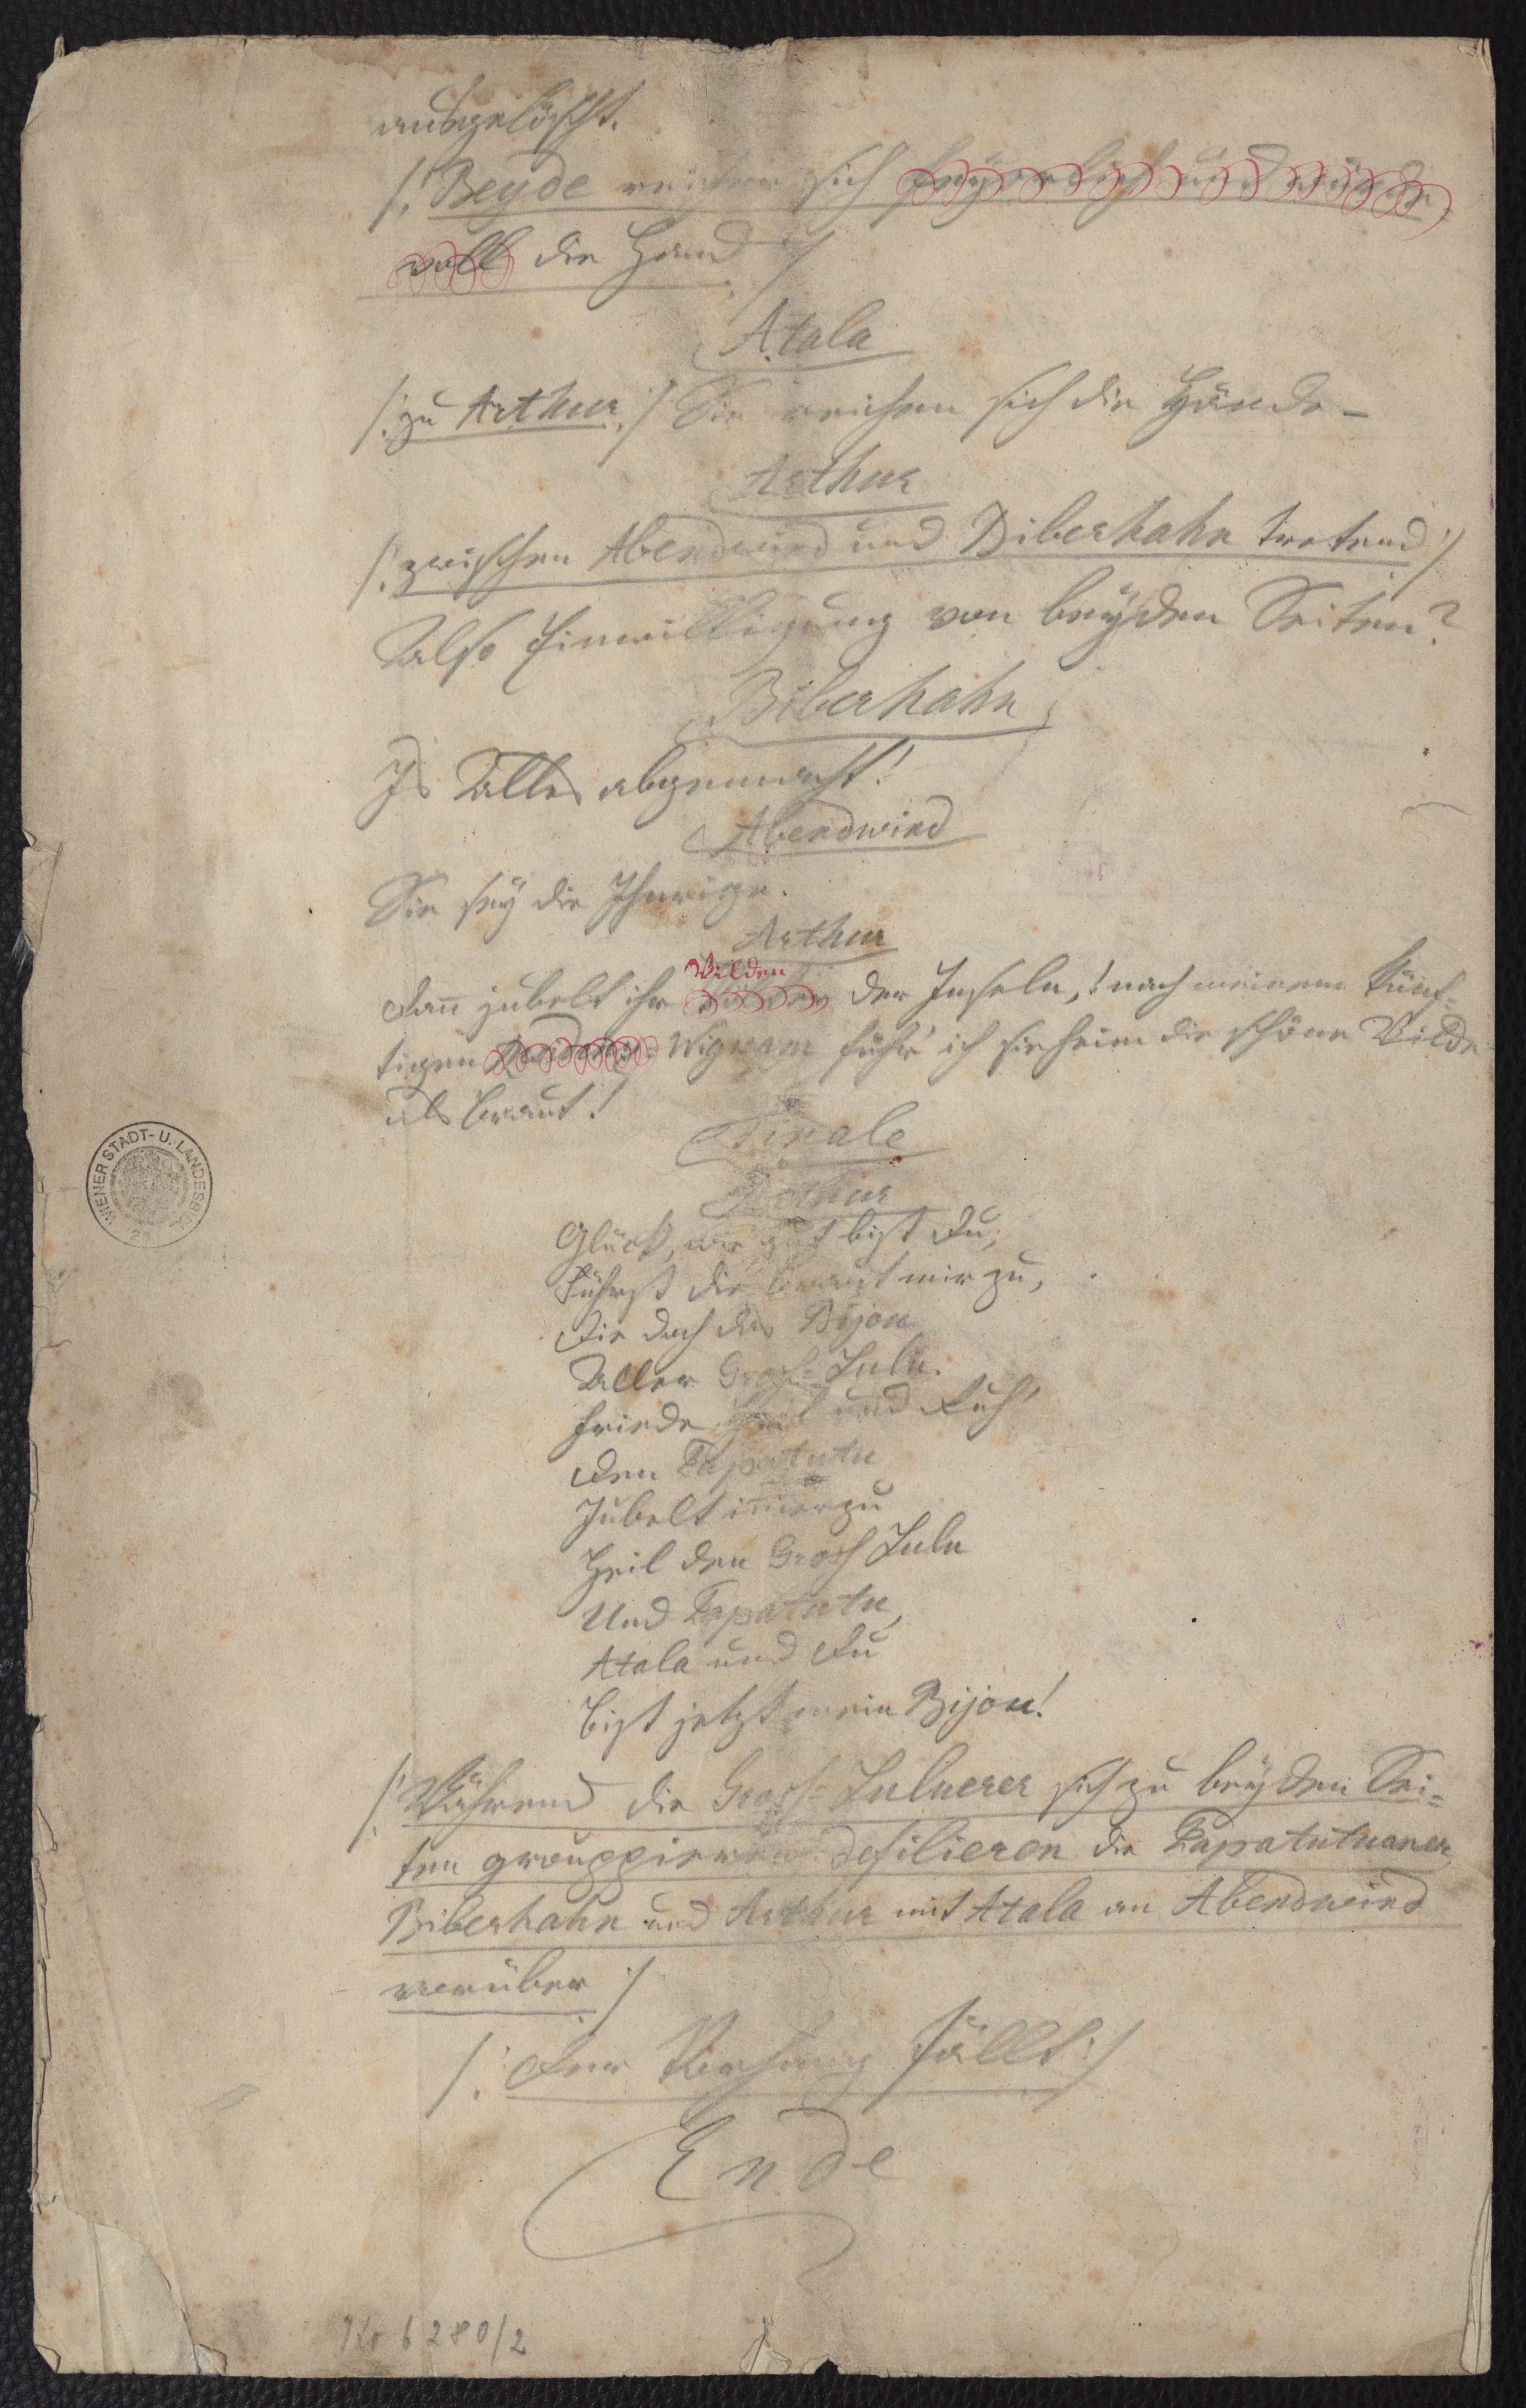 ausgelöscht.
/: Beyde reichen sich feyerlich und würde-
voll die Hand :/
Atala
/: zu Arthur :/ Sie reichen sich die Hände –
Arthur
/: zwischen Abendwind und Biberhahn tretend :/
Also Einwilligung von beyden Seiten?
Biberhahn
Is Alles abgemacht!
Abendwind
Sie sey die Ihrige.
Arthur
Wilden
Dann jubelt ihr der Inseln,! nach meinem künf-
tigen Wigwam führ' ich sie heim die schöne Wilde
als Braut!
Finale
Arthur
Glück, wie gut bist Du,
Führst die Braut mir zu,
Die doch das Bijou
Aller Gross-Lulu.
Friede und Ruh'
Den Papatutu
Jubelt im̅erzu
Heil den Gross Lulu
Und Papatutu,
Atala und Du
Bist jetzt mein Bijou!
/: Während die Gross-Luluerer sich zu beyden Sei-
ten grouppieren defilieren die Papatutuaner
Biberhahn und Arthur mit Atala an Abendwind
vorüber :/
/: Der Vorhang fällt :/
Ende
No 6280/2
WIENER STADT- U. LANDESBIBL.